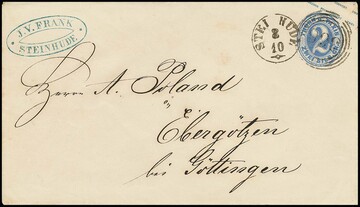 J. V. FRANK
STEINHUDE
STEI HUDE
8
10
2
Herrn A. Poland
in
Ebergötzen
bei Göttingen